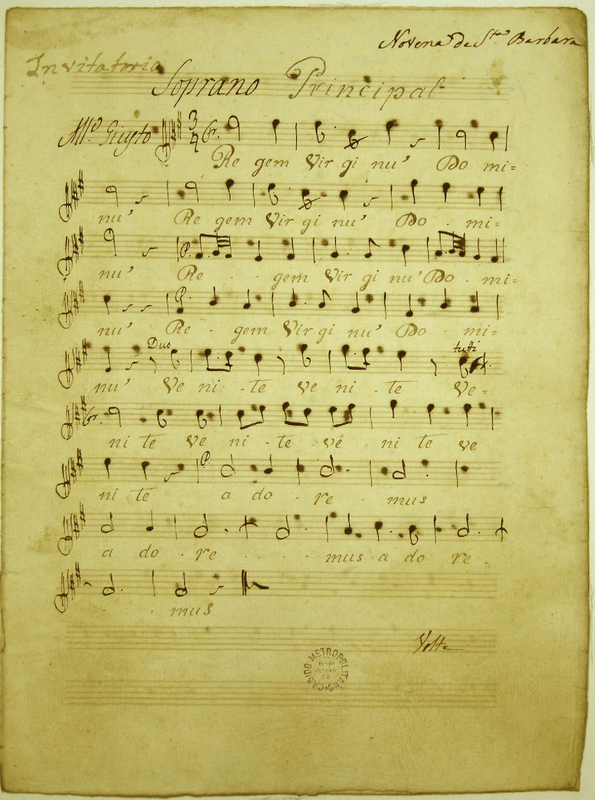 Novena de S.ta Barbara
Invitatorio
Soprano Principal
All.o Giusto
Re gem Vir gi nu' Do mi=
nu' Re gem Vir gi nu' Do . mi=
nu' Re . . gem Vir gi nu' Do . mi=
nu' Re . gem Vir gi nu' Do . mi=
Duo tutti
nu' Ve ni . te ve ni . te Ve=
ni te ve ni . te ve . ni te ve
ni te a do . re . mus
a do . re . . . mus a do re .
. . mus
Volte
CABIDO METROPOLITANO